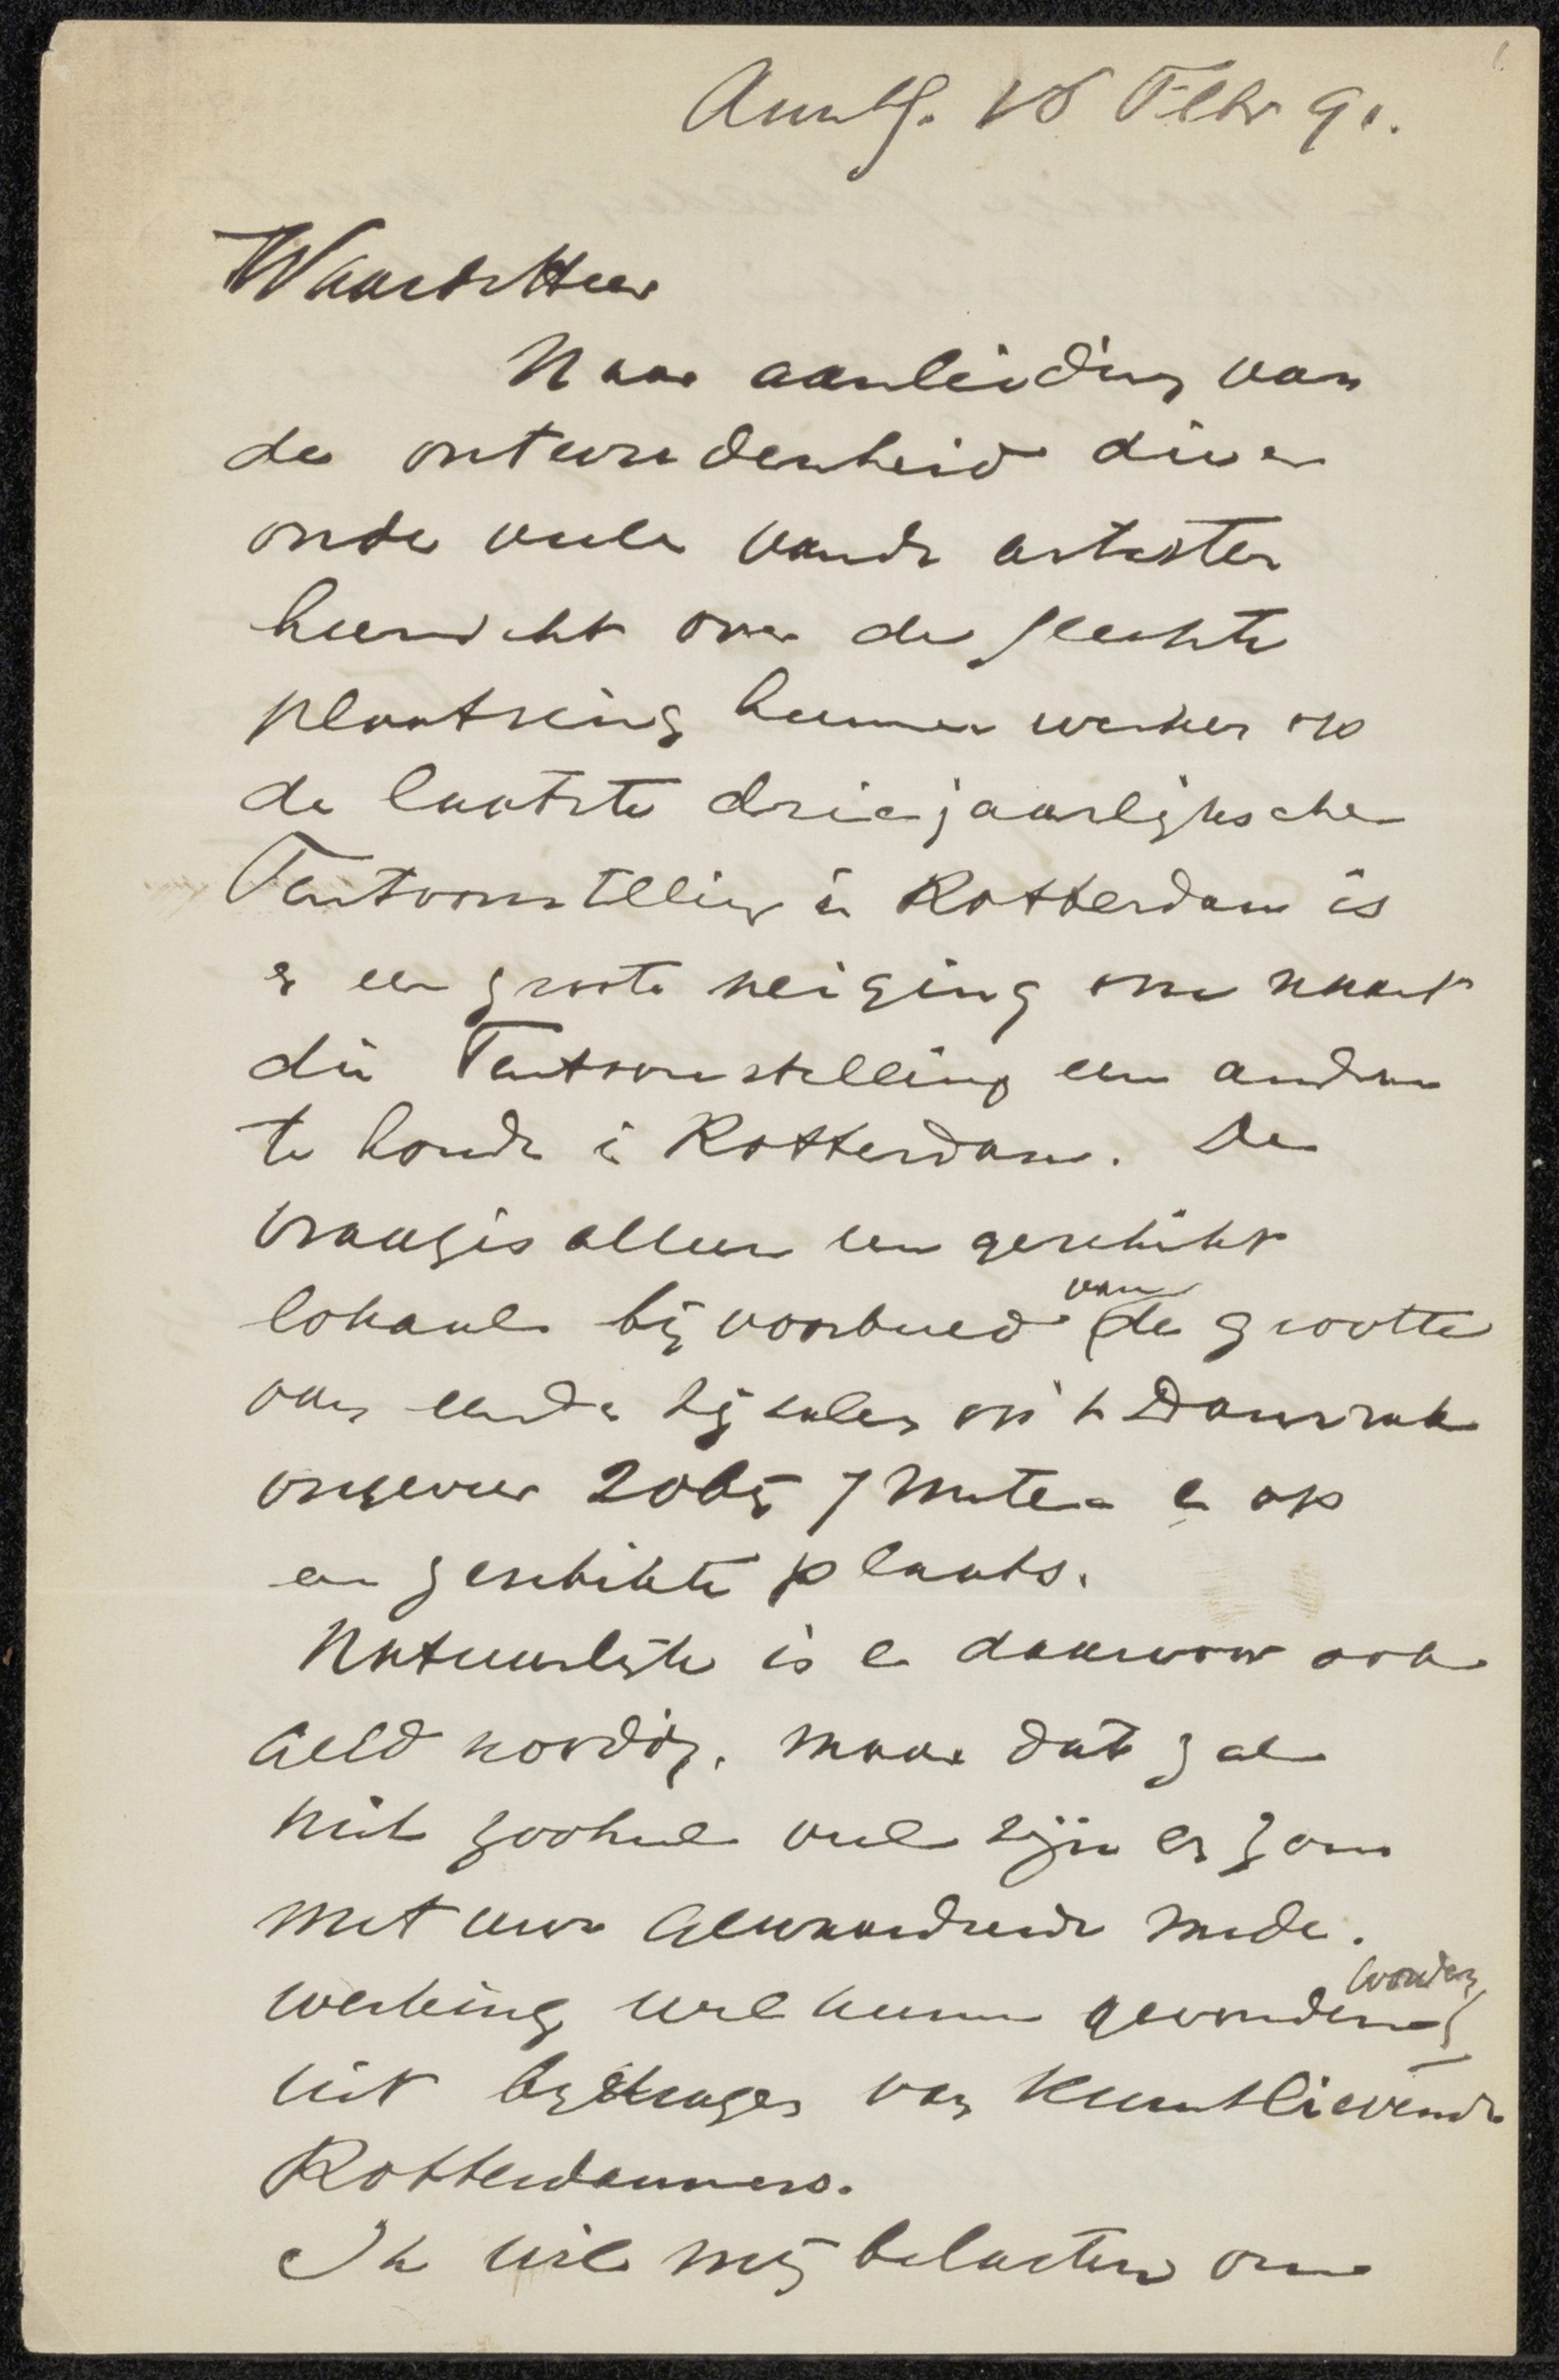 Amst. 18 Febr 91.
Waarde Heer
Naar aanleiding van
de ontevredenheid die er
onder veele van de artisten
heerscht over de slechte
plaatsing hunner werken op
de laatste driejaarlijksche
Tentoonstelling in Rotterdam is
er een groote neiging om naast
die Tentoonstelling een andere
te houden in Rotterdam. De
vraag is alleen een geschikt
lokaal bijvoorbeeld van de grootte
van een der bijzalen op 't Damrak
ongeveer 20 bij 7 Meter en op
een geschikte plaats.
Natuurlijk is er daarvoor ook
Geld noodig. maar dat zal
niet zooheel veel zijn en zou
met uwe Gewaardeerde mede.
werking wel kunnen gevonden worden
uit bijdrages van Kunstlievende
Rotterdammers.
Ik wil mij belasten om